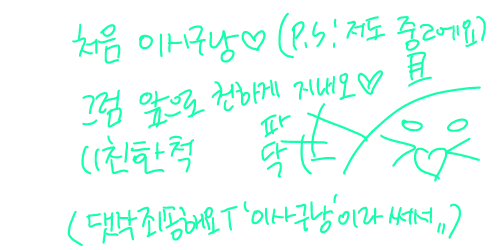 처음 이시구낭♡ (P.S: 저도 중2에요)
그럼 앞으로 친하게 지내오♡
((친한척
파닥
(댓삭죄송해요ㅜ '이사구낭'이라 써서,,)